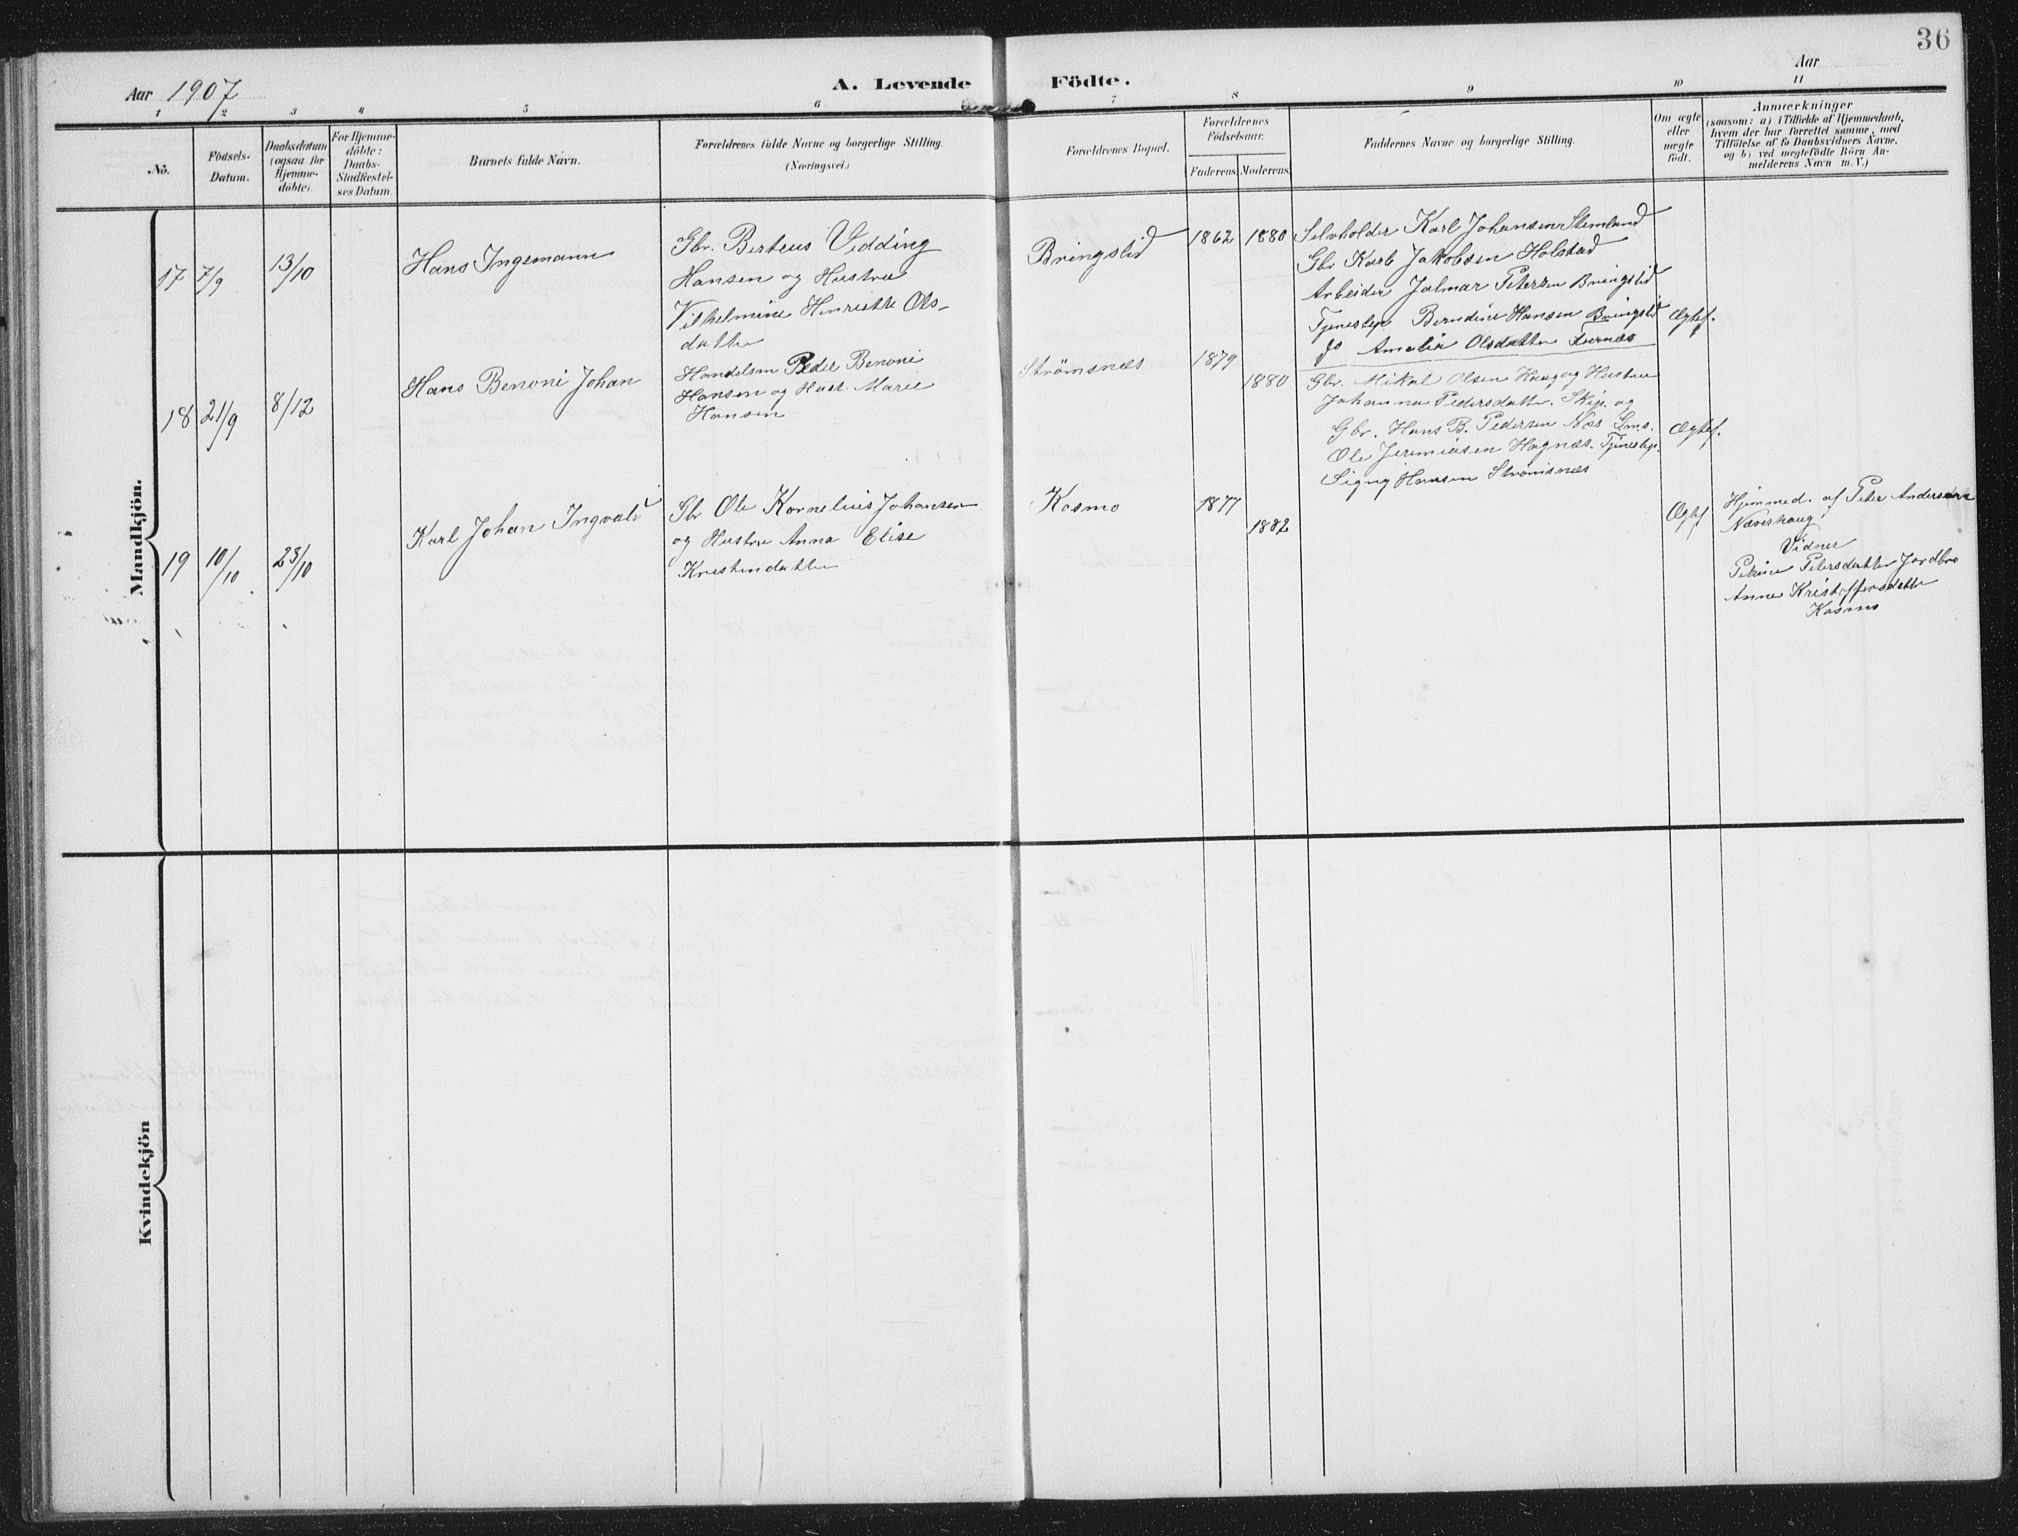 36
Aar 1907
A. Levende Födte.
Aar
1 2 3 4 5 6 6 7 8 9 10 11
No.
Födsels-
Datum.
Daabsdatum
(ogsaa for
Hjemme-
döbte).
For Hjemme-
döbte:
Daabs-
Stadfæstel-
ses Datum.
Barnets fulde Navn.
Forældrenes fulde Navne og borgerlige Stilling.
(Næringsvei.)
Forældrenes Bopæl.
Forældrenes
Födselsaar.
Faderens. Moderens.
Faddernes Navne og borgerlige Stilling.
Om ægte
eller
uægte
födt.
Anmærkninger
(saasom: a) i Tilfælde af Hjemmedaab,
hvem der har forrettet samme, med
Tilföielse af to Daabsvidners Navne,
og b) ved uægtefödte Börn An-
melderens Navn m. V.)
Mandkjön.
17 7/9 13/10
Hans Ingemann
Gbr. Berteus Vedding
Hansen og Hustru
Vilhelmine Henriette Ols-
datter
Bringslid
1862 1880
Selvholder Karl Johansen Stemland
Gbr Karl Jakobsen Holstad
Arbeider Jalmar Petersen Bringslid
Tjenestepi Berndine Hansen Bringslid
do Amalie Olsdatter
Ægtef.
18 21/9 8/12
Hans Benoni Johan
Handelsm Peder Benoni
Hansen og Hust. Marie
Hansen
Strömsnæs
1879
1880
Gbr. Mikal Olsen Haug og Hustru
Johanna Pedersdatter. Skip. og
Gbr. Hans B. Pedersen Næs
Ole Jeremiasen Hognæs. Tjenestepi.
Signy Hansen Strömsnæs
Ægtef.
19 10/10 23/10
Karl Johan Ingvald
Gbr Ole Kornelius Johansen
og Hustru Anna Elise
Kristendatter
Kosmo
1877
1882
Ægtef
Hjemmed. af Peter Andersen
Næveshaug
Vidner
Petrine Petersdatter Jordbro
Anne Kristoffersdatter
Kosmo
Kvindekjön